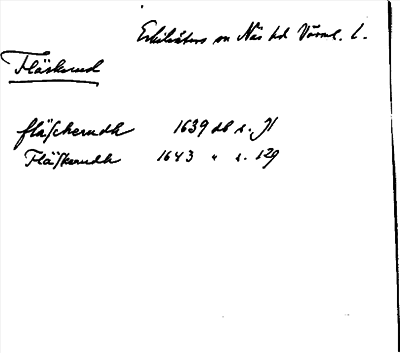 Eskilsäters sn Näs hd Värml. l.
Fläskerud
fläscherudh 1639 db s. 71
Fläskerudh 1643 " s. 129